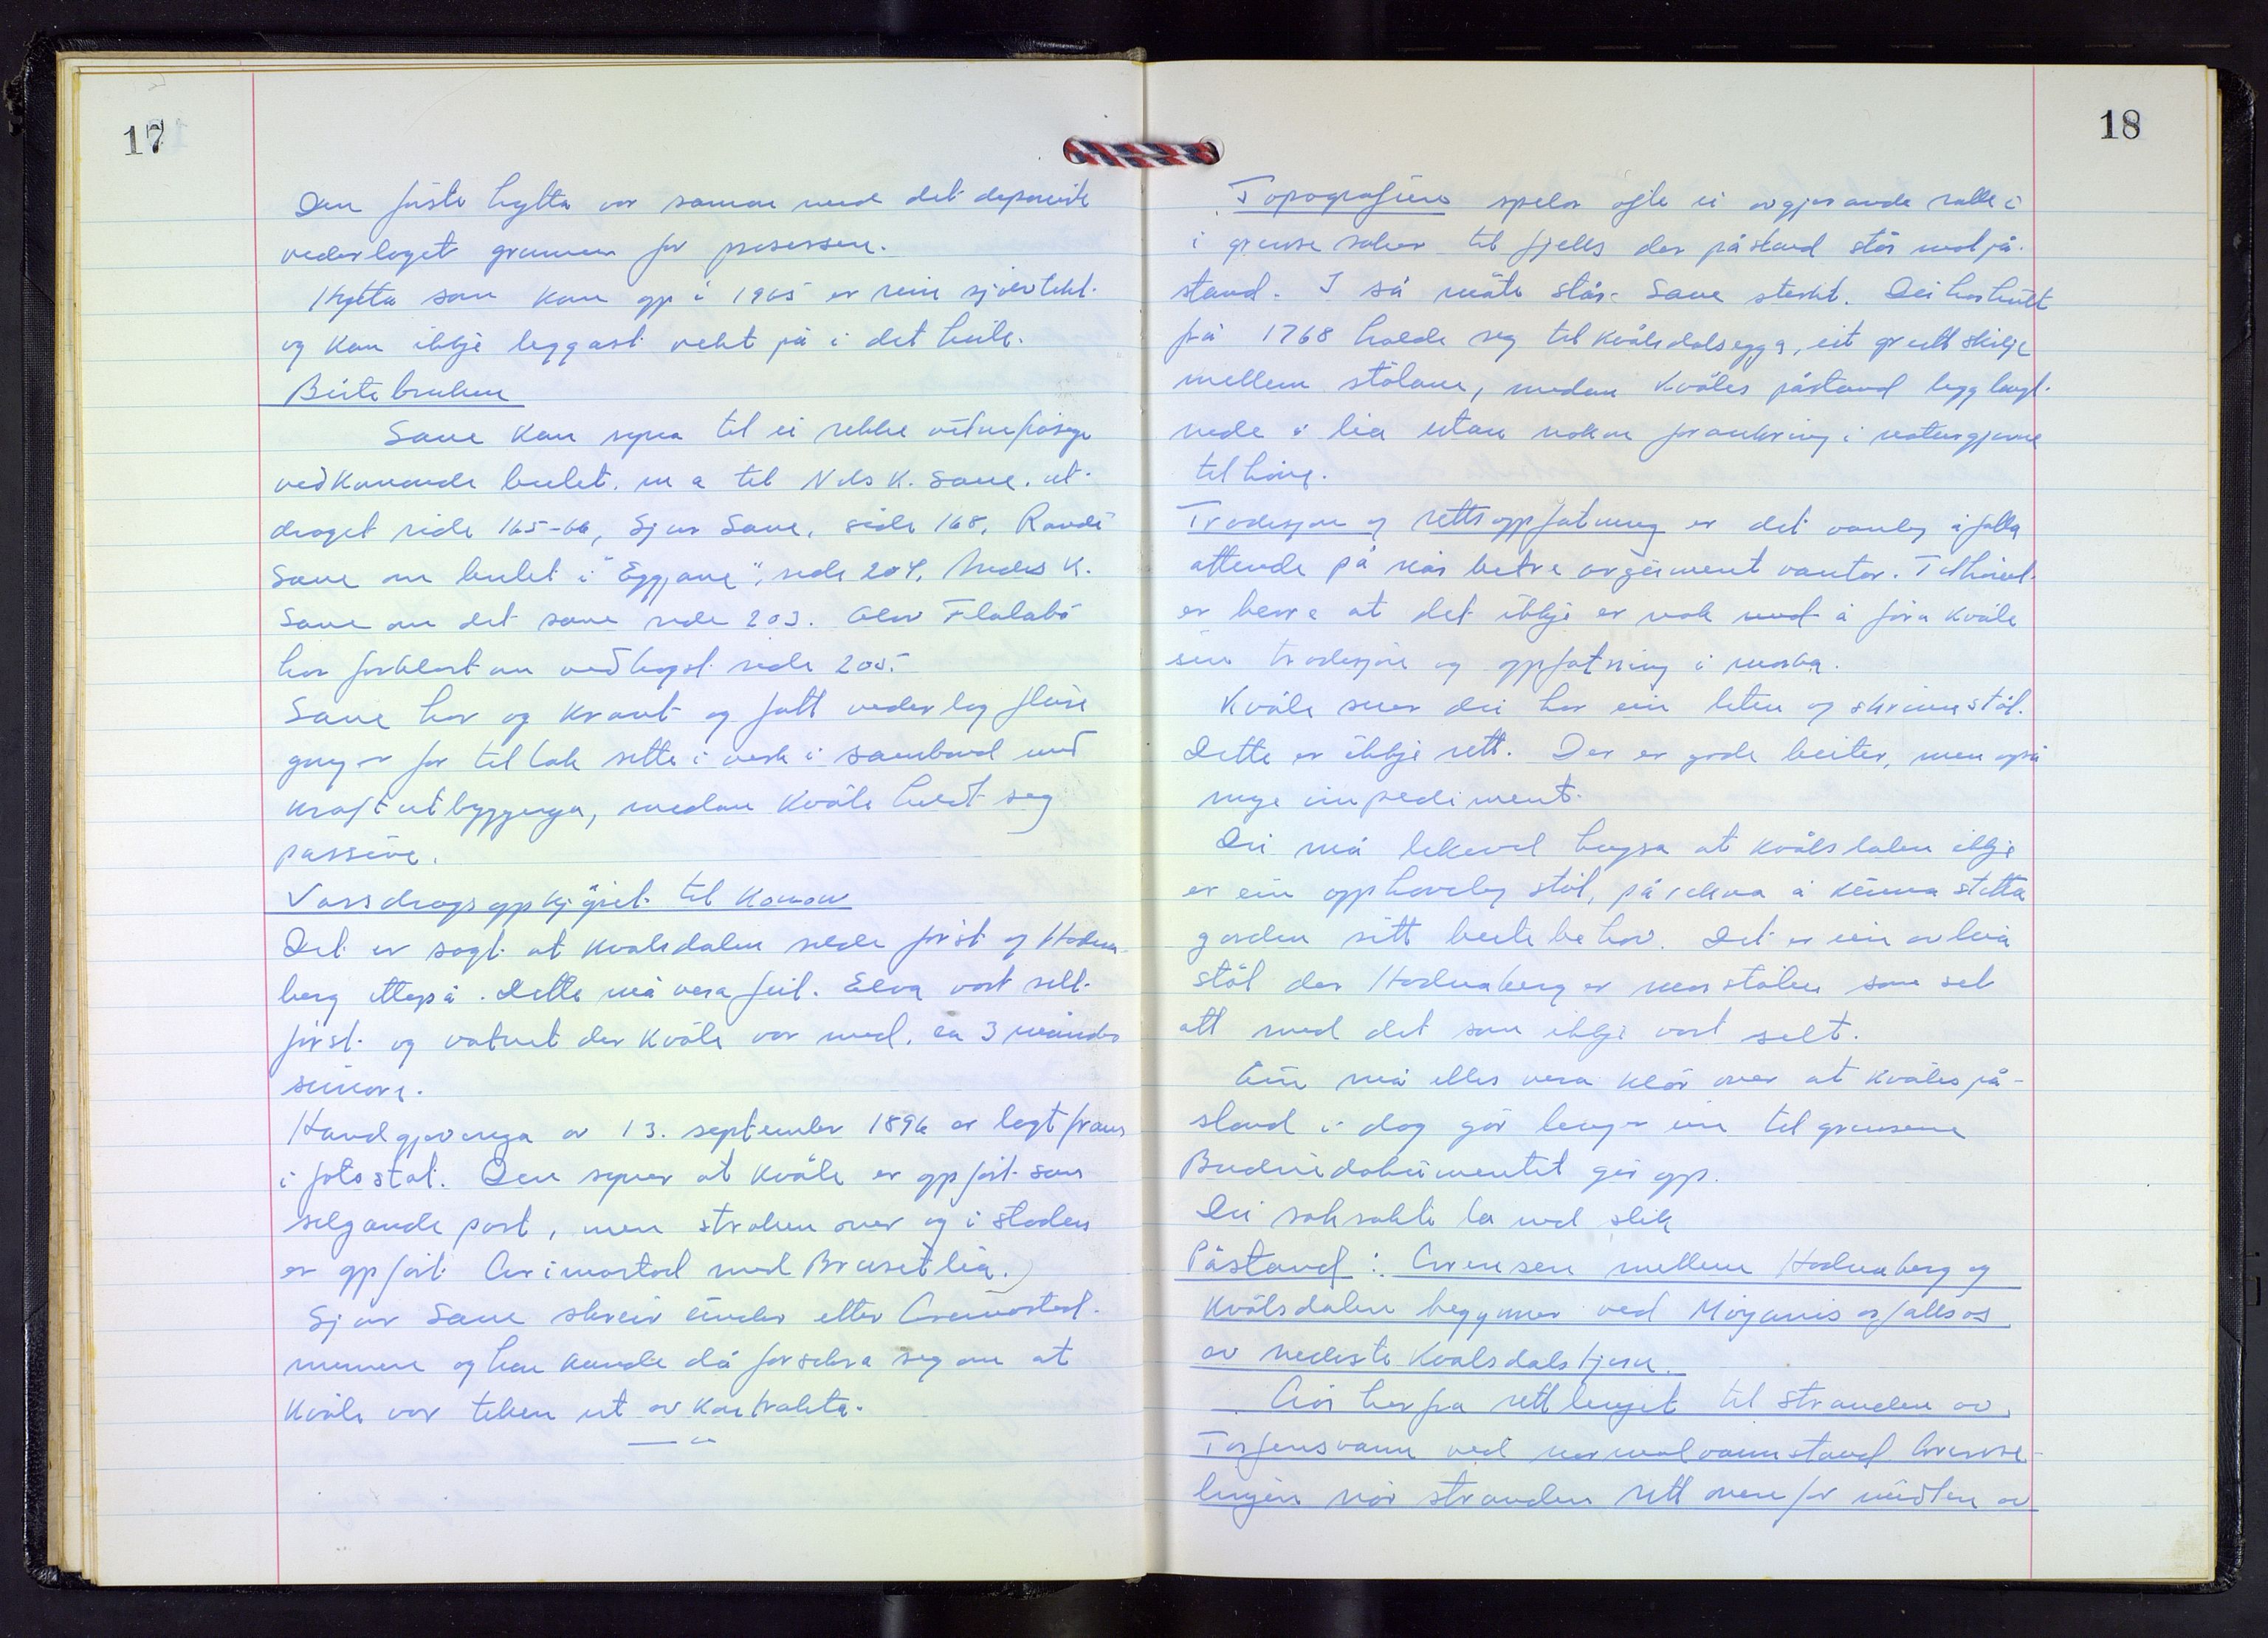 17
Den fyste hytta var saman med det deponerte
vederlaget grunnen for prosessen.
Hytta som kom opp i 1965 er rein sjølvtekt
og kan ikkje leggast vekt på i det heile.
Beitebruken
Save kan syna til ei rekke vitneprov
vedkomande beitet. m a til Nils K. Save. ut-
draget side 165-66, Sjur Save, side 168, Randi
Save om beitet i "Eggjane", side 204, Anders K.
Save om det same side 203. Olav Flatabø
har forklart om vedhogst side 205.
Save har og kravt og fått vederlag fleire
gonger for tiltak sette i verk i samband med
kraftutbygginga, medan Kvåle heldt seg
passive.
Vassdragsoppkjøpet til Konow
Det er sagt at Kvålsdalen selde først og Hodna-
berg etterpå. Dette må vera feil. Elva vart selt
først og vatnet der Kvåle var med, ca 3 månder
seinare.
Handgjevinga av 13. september 1896 er lagt fram
i fotostat. Den syner at Kvåle er oppført som
selgande part, men stroken over og i staden
er oppført Grimastad med Brusetlia.
Sjur Save skreiv under etter Grimastad-
mennene og han kunde då forsikra seg om at
Kvåle var teken ut av kontrakta.
18
Topografien spelar ofte ei avgjerande rolle i
i grensesaker til fjells der påstand står mot på-
stand. I så måte står Save sterkt. Dei har heilt
frå 1768 halde seg til Kvålsdalsegga, eit greitt skilje
mellom stølane, medan Kvåles påstand ligg langt
nede i lia utan nokon forankring i naturgjevne
tilhøve.
Tradisjon og rettsoppfatning er det vanleg å falla
attende på når betre argument vantar. Tilhøvet
er berre at det ikkje er nok med å føra Kvåle
sin tradisjon og oppfatning i marka.
Kvåle seier dei har ein liten og skrinn støl.
Dette er ikkje rett. Der er gode beiter, men også
mye impediment.
Dei må likevel hugsa at Kvålsdalen ikkje
er ein opphaveleg støl, på rekna å kunna støtta
garden sitt beitebehov. Det er ein avleia
støl der Hodnaberg er morstølen som sat
att med det som ikkje vart selt.
Ein må elles vera klår over at Kvåles på-
stand i dag går lenger inn til grensene
Budeiedokumentet gir opp.
Dei saksøkte la ned slik
Påstand: Grensen mellem Hodnaberg og
Kvålsdalen begynner ved Myranes osfallsos
av nedeste Kvalsdalstjern.
Går herfra rettlinjet til stranden av
Torfinnsvann ved normalvannstand. Grense-
linjen når stranden rett overfor midten av